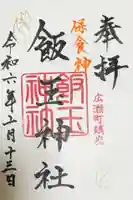 奉拝
広瀬町鎮守
保食神
飯玉神社
飯玉神社
令和六年 月十三日